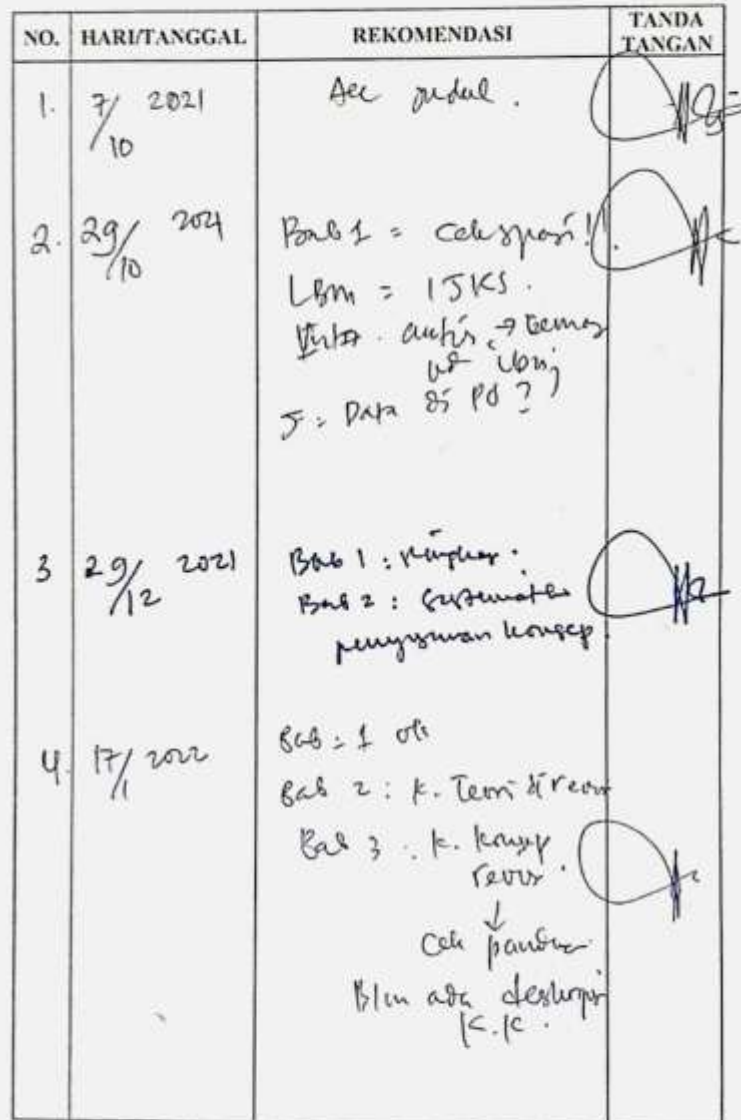 NO. HARI/TANGGAL REKOMENDASI TANDA TANGAN
1. 7/10 2021 Acc judul.
2. 29/10 2021 Bab 1 = cek spasi!!
LBM = IJKS.
autis →
J : Data di PD ?
3 29/12 2021 Bab 1 :
Bab 2 : Sistematika
penyusunan konsep.
4. 17/1 2022 Bab : 1 ok
Bab 2 : K. Teori direvisi
Bab 3 : K. Konsep
revisi.
↓
Cek panduan
Blm ada deskripsi
K.K.